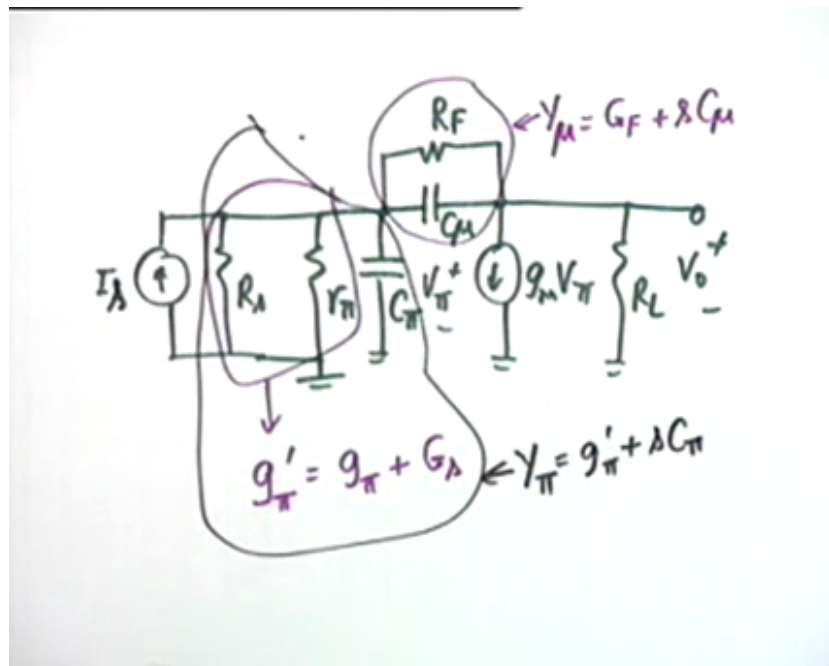 R_F
← Y_μ = G_F + sC_μ
C_μ
I_s
R_s
r_π
C_π
V_π
+
-
g_m V_π
R_L
V_o
+
-
g_π' = g_π + G_s
← Y_π = g_π' + sC_π